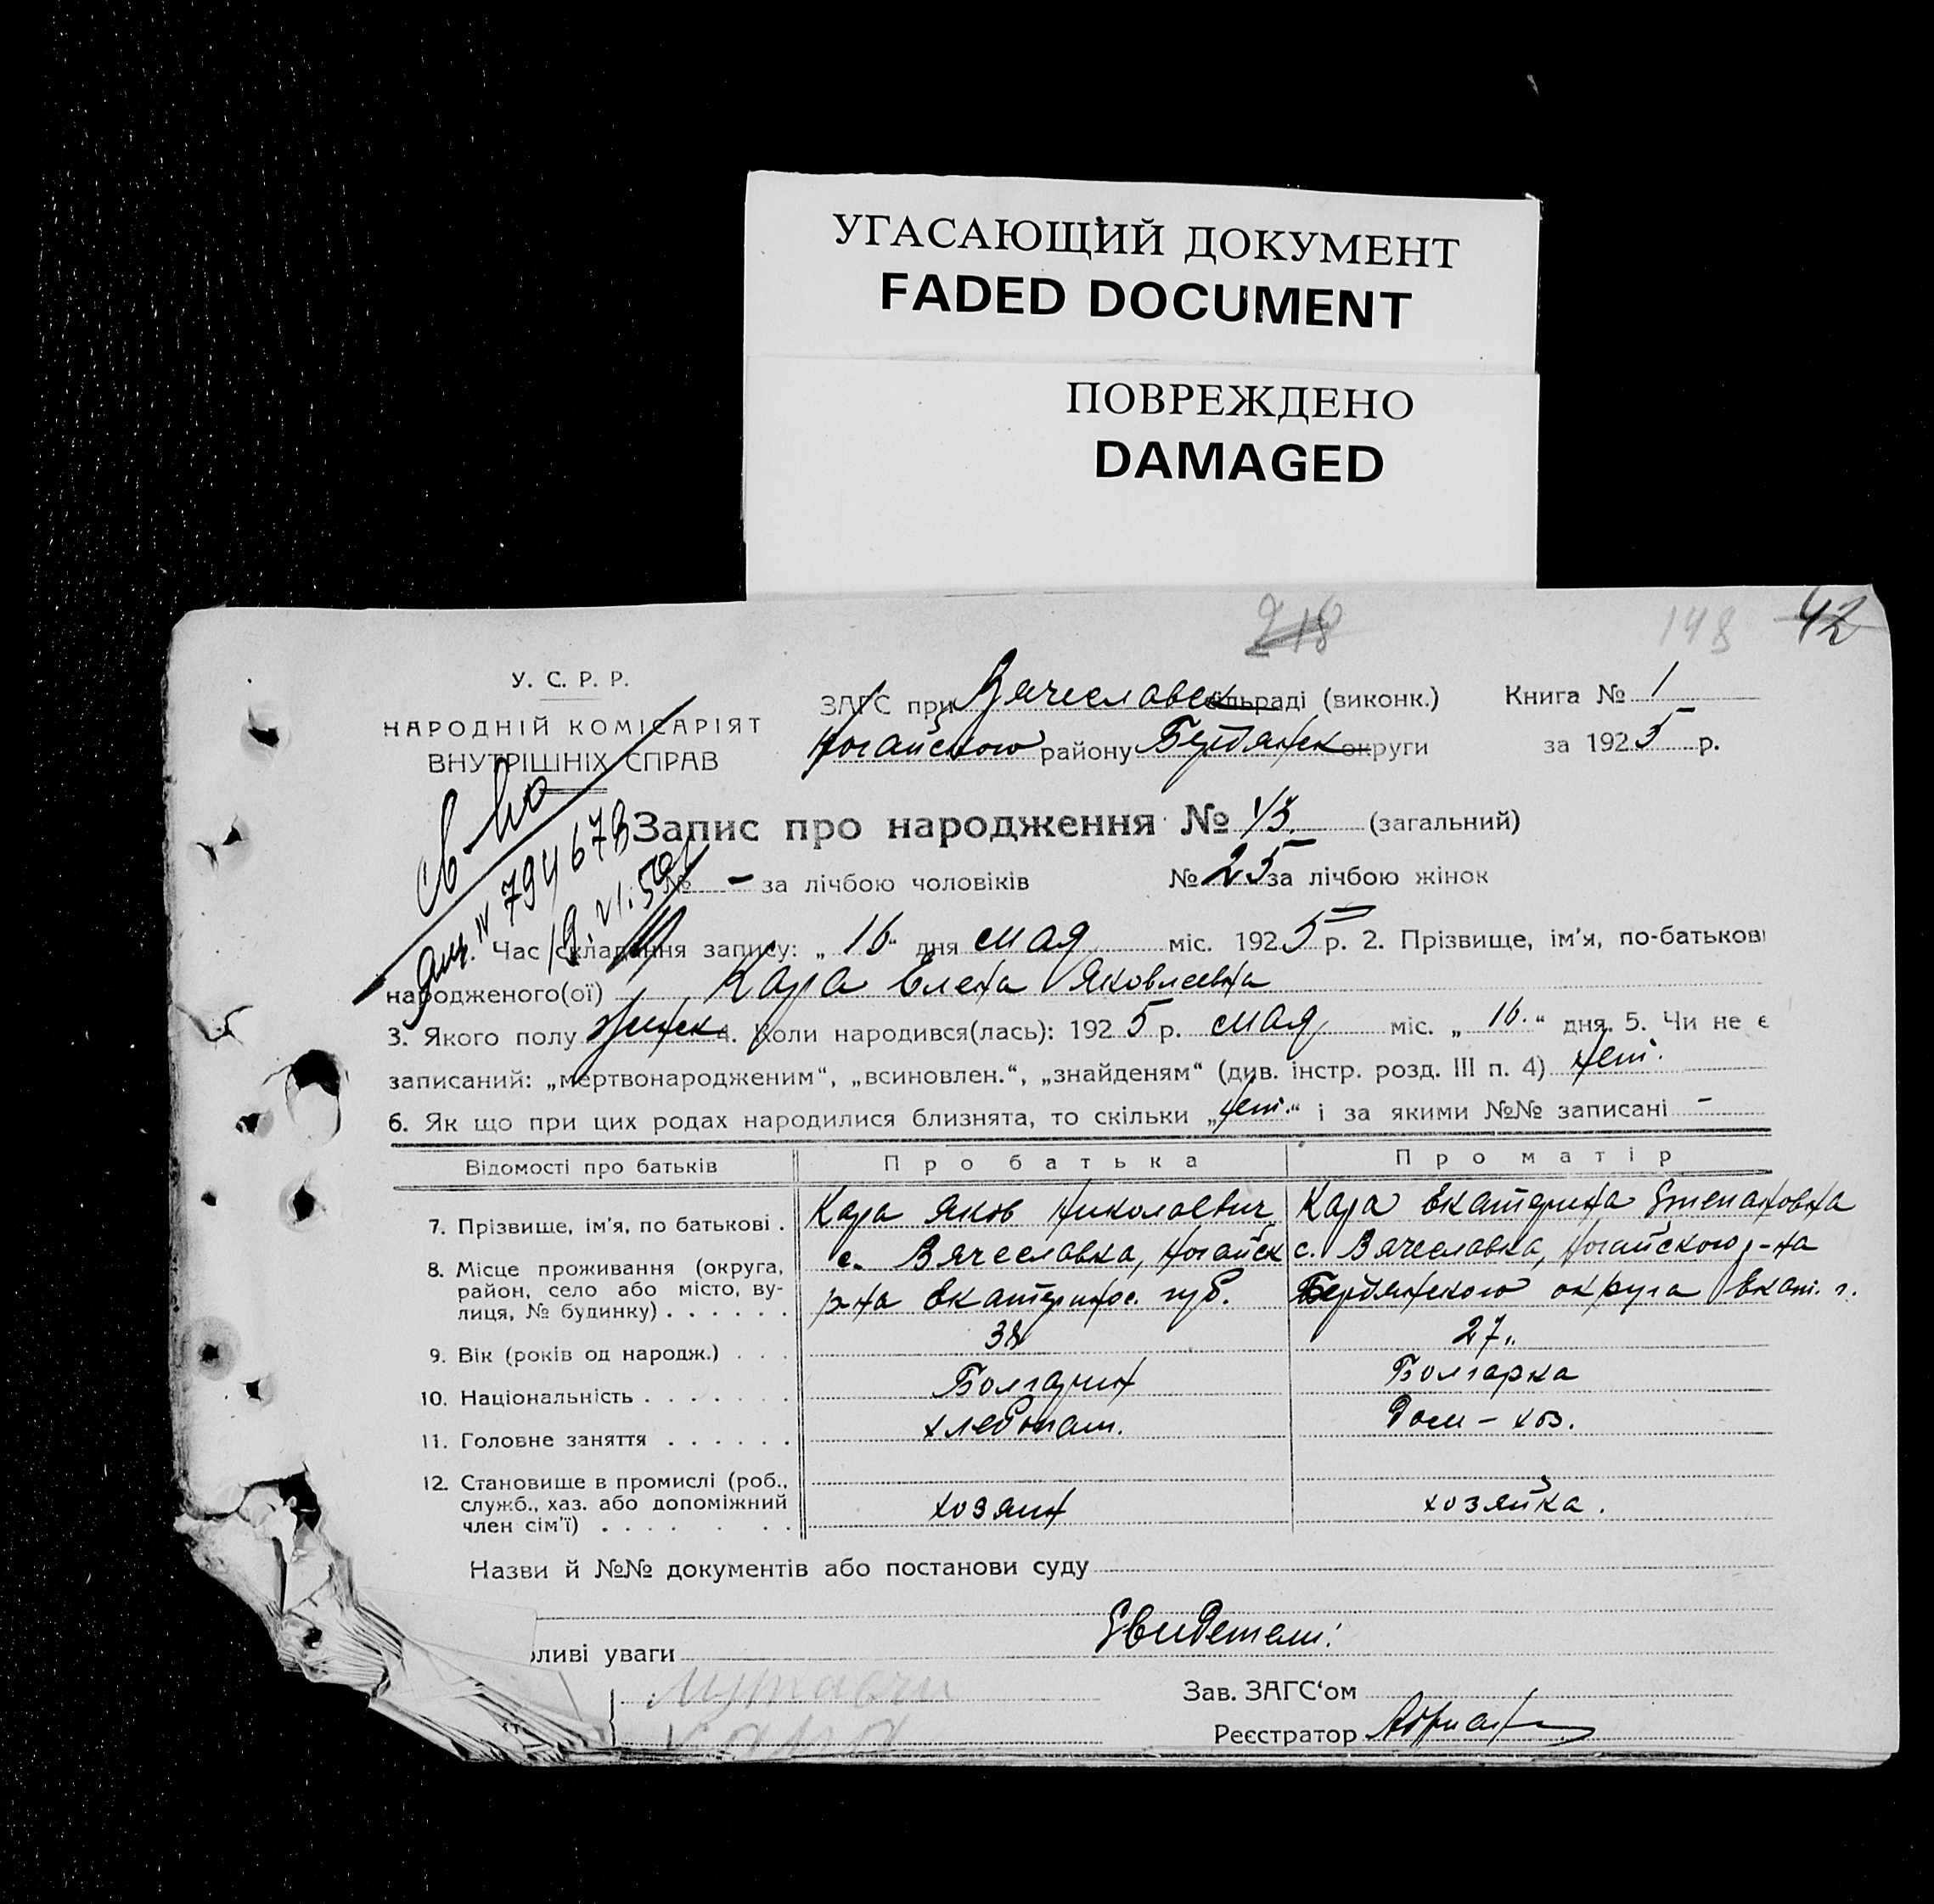 УГАСАЮЩИЙ ДОКУМЕНТ
FADED DOCUMENT
ПОВРЕЖДЕНО
DAMAGED
218
148 42
У. С. Р. Р.
НАРОДНІЙ КОМІСАРІЯТ
ВНУТРІШНІХ СПРАВ
ЗАГС при Вячеславск сільраді (виконк.) Книга № 1
Ногайского району Бердянск округи за 1925 р.
св-во
794673
Запис про народження № 43. (загальний)
№ - за лічбою чоловіків № 25 за лічбою жінок
Час складання запису: „16“ дня мая міс. 1925 р. 2. Прізвище, ім'я, по-батькові
народженого(ої) Кара Елена Яковлевна
3. Якого полу женск 4. Коли народився(лась): 1925 р. мая міс. „16.“ дня. 5. Чи не є
записаний: „мертвонародженим“, „всиновлен.“, „знайденям“ (див. інстр. розд. III п. 4) нет.
6. Як що при цих родах народилися близнята, то скільки „нет.“ і за якими №№ записані -
Відомості про батьків Про батька Про матір
7. Прізвище, ім'я, по батькові . Кара Яков Николаевич Кара Екатерина Степановна
8. Місце проживання (округа, с. Вячеславка, Ногайск с. Вячеславка, Ногайского р-на
район, село або місто, ву-
лиця, № будинку) . . . . . . р-на Екатеринос. губ. Бердянского округа Екат. г.
9. Вік (років од народж.) . . . 38 27.
10. Національність . . . . . . . Болгарин Болгарка
11. Головне заняття . . . . . . хлебопаш. Дом - хоз.
12. Становище в промислі (роб.,
служб., хаз. або допоміжний хозяин хозяйка.
член сім'ї) . . . . . .
Назви й №№ документів або постанови суду
Свидетели:
ливі уваги
Зав. ЗАГС‘ом
Кара
Реєстратор